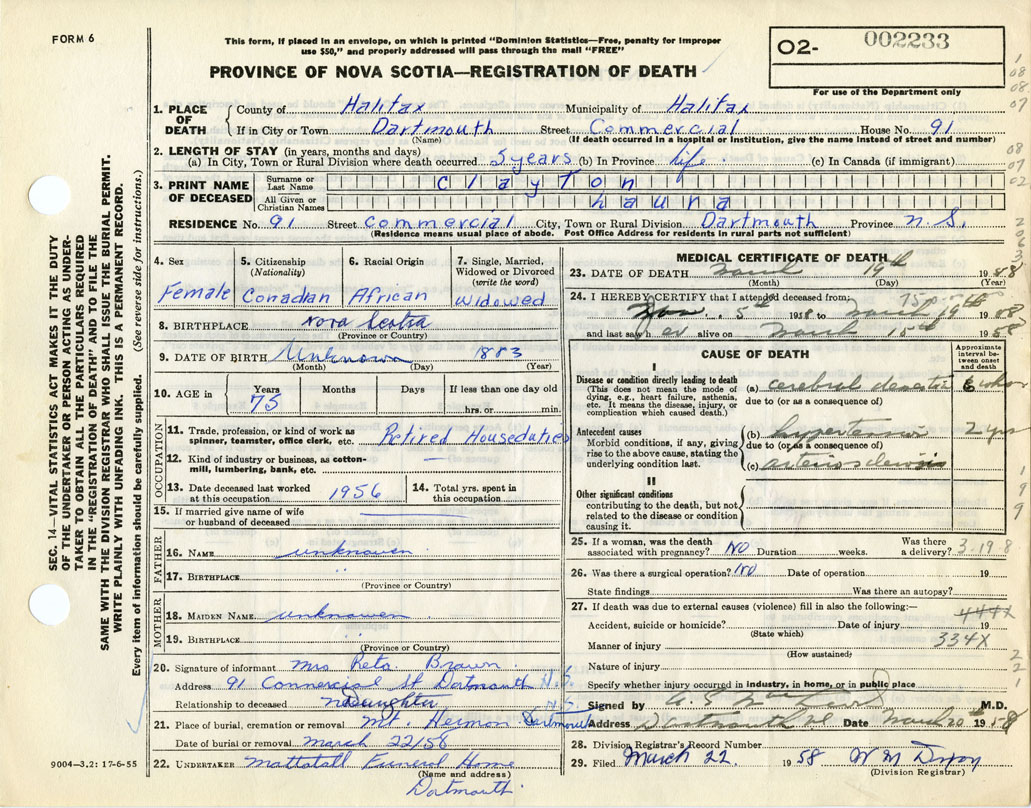 FORM 6
This form, if placed in an envelope, on which is printed "Dominion Statistics—Free, penalty for improper
use $50," and properly addressed will pass through the mail "FREE"
PROVINCE OF NOVA SCOTIA—REGISTRATION OF DEATH
O2- 002233
For use of the Department only
1. PLACE OF DEATH
County of Halifax Municipality of Halifax
If in City or Town Dartmouth Street Commercial House No. 91
(Name) (If death occurred in a hospital or institution, give the name instead of street and number)
2. LENGTH OF STAY (in years, months and days)
(a) In City, Town or Rural Division where death occurred 3 years (b) In Province life (c) In Canada (if immigrant)
3. PRINT NAME OF DECEASED
Surname or Last Name Clayton
All Given or Christian Names Laura
RESIDENCE No. 91 Street Commercial City, Town or Rural Division Dartmouth Province N.S.
(Residence means usual place of abode. Post Office Address for residents in rural parts not sufficient)
4. Sex
Female
5. Citizenship
(Nationality)
Canadian
6. Racial Origin
African
7. Single, Married,
Widowed or Divorced
(write the word)
Widowed
8. BIRTHPLACE Nova Scotia
(Province or Country)
9. DATE OF BIRTH Unknown 1883
(Month) (Day) (Year)
10. AGE in
Years Months Days If less than one day old
75 hrs. or min.
OCCUPATION
11. Trade, profession, or kind of work as
spinner, teamster, office clerk, etc. Retired Houseduties
12. Kind of industry or business, as cotton-
mill, lumbering, bank, etc. —
13. Date deceased last worked
at this occupation 1956
14. Total yrs. spent in
this occupation
15. If married give name of wife
or husband of deceased —
FATHER
16. NAME unknowen
17. BIRTHPLACE ..
(Province or Country)
MOTHER
18. MAIDEN NAME unknowen
19. BIRTHPLACE ..
(Province or Country)
20. Signature of informant Mrs Reta Brown
Address 91 Commercial St Dartmouth N.S.
Relationship to deceased Daughter
21. Place of burial, cremation or removal Mt. Hermon Dartmouth N.S.
Date of burial or removal March 22/58
22. UNDERTAKER Mattatall Funeral Home
(Name and address)
Dartmouth
9004—3.2: 17-6-55
MEDICAL CERTIFICATE OF DEATH
23. DATE OF DEATH March 19th 1958
(Month) (Day) (Year)
24. I HEREBY CERTIFY that I attended deceased from:
5th 1958 to March 19 1958
and last saw her alive on March 15th 1958
CAUSE OF DEATH
Approximate
interval between onset
and death
I
Disease or condition directly leading to death
(This does not mean the mode of
dying, e.g., heart failure, asthenia,
etc. It means the disease, injury, or
complication which caused death.)
(a) cerebral
due to (or as a consequence of)
Antecedent causes
Morbid conditions, if any, giving
rise to the above cause, stating the
underlying condition last.
(b) hypertension 2 yrs
due to (or as a consequence of)
(c) arteriosclerosis
II
Other significant conditions
contributing to the death, but not
related to the disease or condition
causing it.
25. If a woman, was the death
associated with pregnancy? No Duration weeks. Was there
a delivery? 3-19-8
26. Was there a surgical operation? No Date of operation 19
State findings Was there an autopsy?
27. If death was due to external causes (violence) fill in also the following:— 444X
Accident, suicide or homicide? Date of injury 19
(State which) 334X
Manner of injury
(How sustained)
Nature of injury
Specify whether injury occurred in industry, in home, or in public place
Signed by M.D.
Address Dartmouth Date March 20th 1958
28. Division Registrar's Record Number
29. Filed March 22 1958 W M
(Division Registrar)
SEC. 14—VITAL STATISTICS ACT MAKES IT THE DUTY
OF THE UNDERTAKER OR PERSON ACTING AS UNDER-
TAKER TO OBTAIN ALL THE PARTICULARS REQUIRED
IN THE "REGISTRATION OF DEATH" AND TO FILE THE
SAME WITH THE DIVISION REGISTRAR WHO SHALL ISSUE THE BURIAL PERMIT.
WRITE PLAINLY WITH UNFADING INK. THIS IS A PERMANENT RECORD.
Every item of information should be carefully supplied. (See reverse side for instructions.)